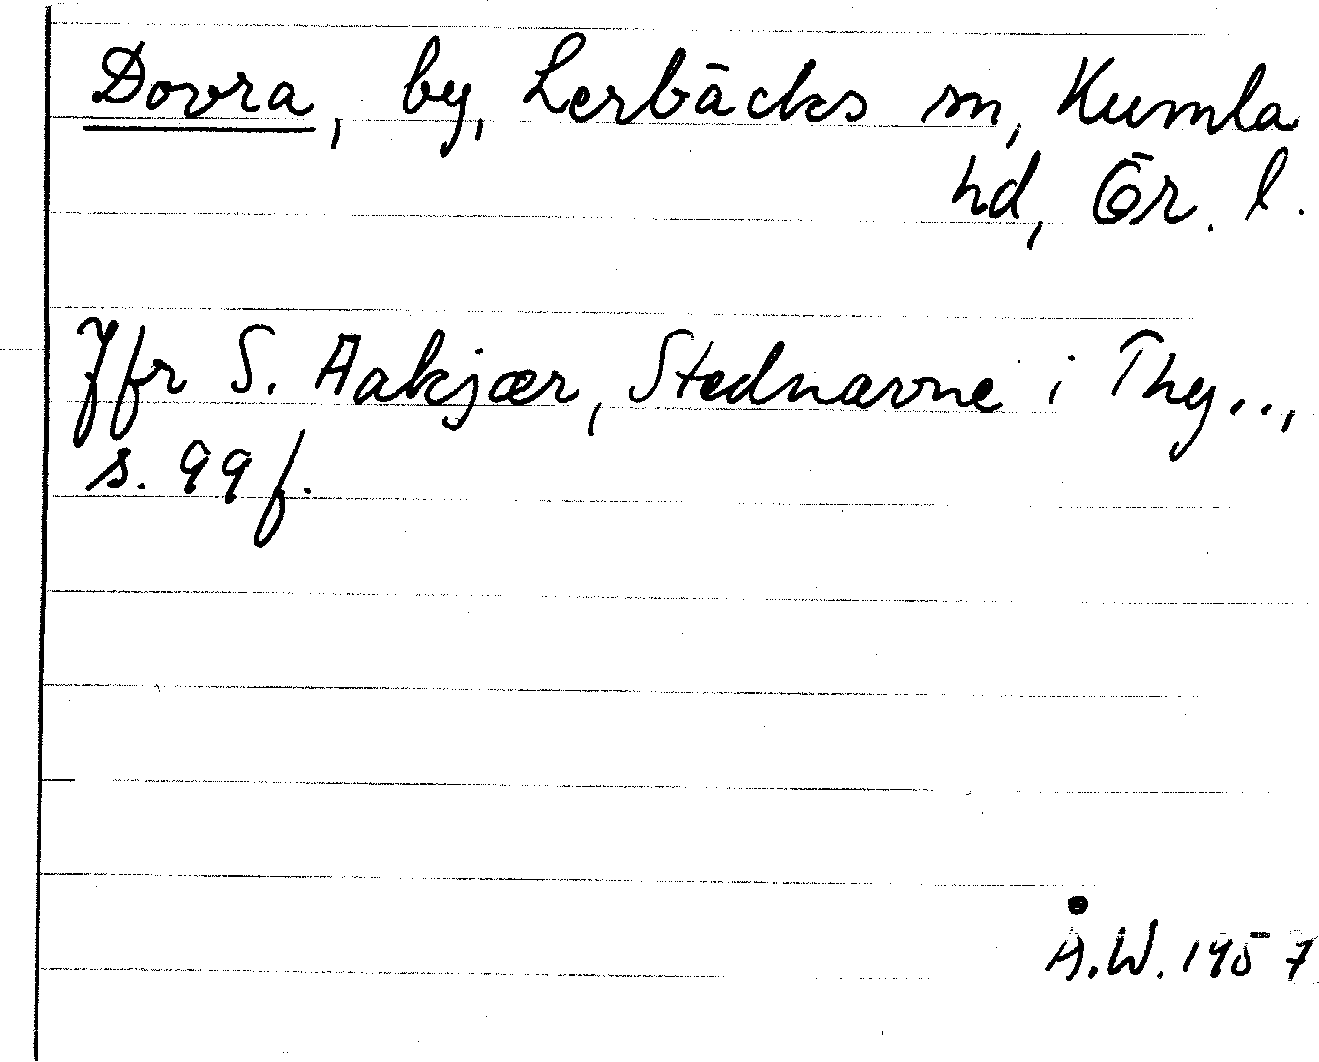 Dovra, by, Lerbäcks sn, Kumla
hd, Ör. l.
Jfr S. Aakjær, Stednavne i Thy..,
s. 99 f.
Å.W. 1957